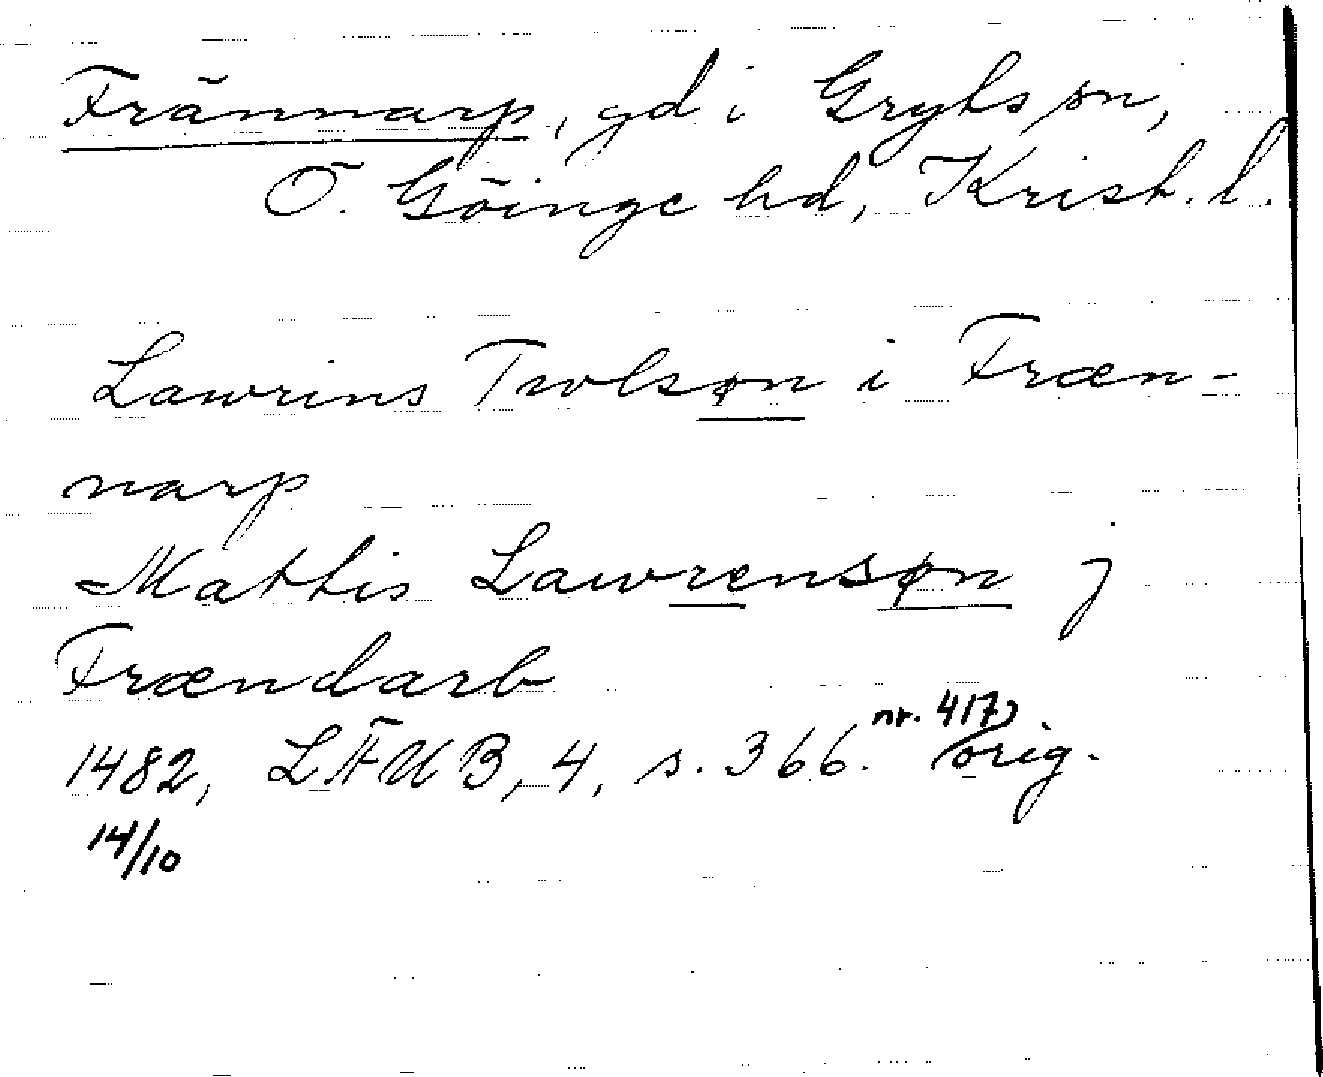 Frännarp, gd i Gryts sn,
Ö. Göinge hd, Krist. l.
Lawrins Trolsøn i Fræn-
narp
Mattis Lawrensøn j
Frændarb
1482, LÄUB, 4, s. 366. nr. 417, orig.
14/10